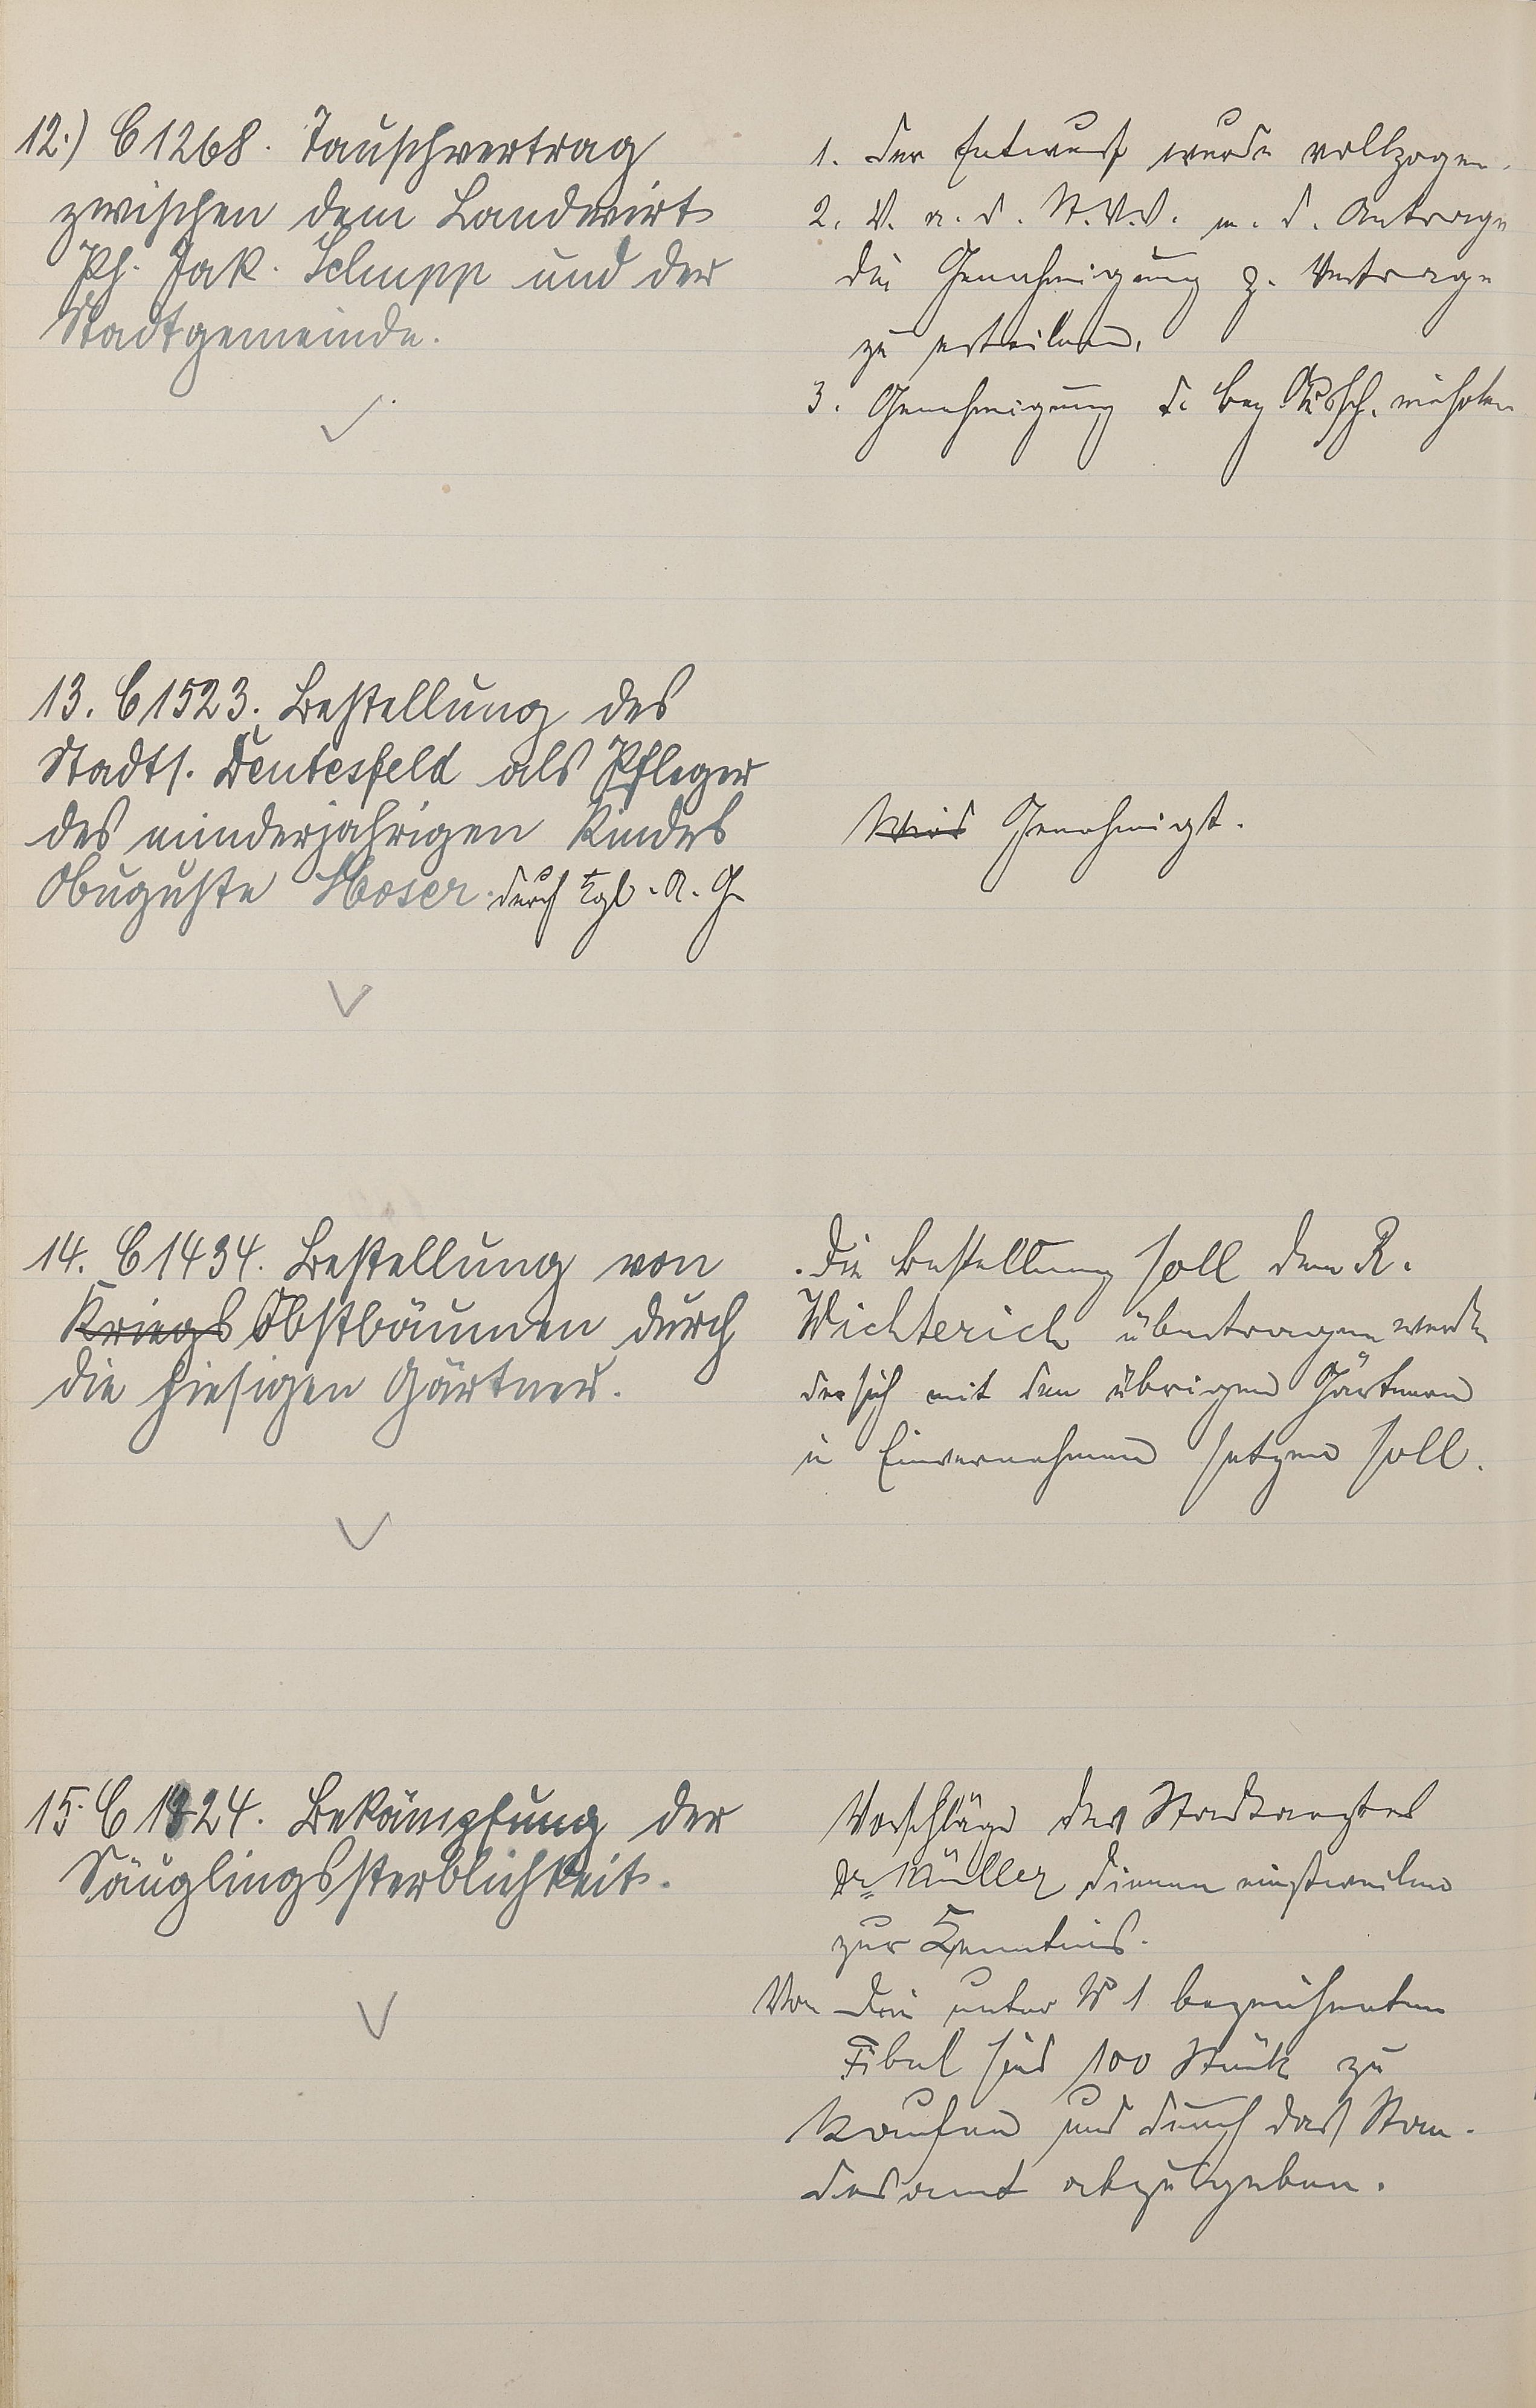 12.) C 1268. Tauschvertrag
zwischen dem Landwirt
Ph. Jak. Schnepp und der
Stadtgemeinde.
1. Der Entwurf wurde vollzogen.
2. V. a. d. St.V.V. m. d. Antrage
die Genehmigung z. Vertrage
zu erteilen.
3. Genehmigung d. Bez. Aussch.
13. C 1523. Bestellung des
Stadts. Deutesfeld als Pfleger
des minderjährigen Kindes
Auguste Moser. durch Kgl. A. G.
Wird Genehmigt.
14. C 1434. Bestellung von
Kriegs Obstbäumen durch
die hiesigen Gärtner.
Die Bestellung soll dem R.
Wichterich übertragen werden
der sich mit den übrigen Gärtnern
in Einvernehmen setzen soll.
15. C 1324. Bekämpfung der
Säuglingssterblichkeit.
Vorschläge des Stadtarztes
Dr. Müller dienen einstweilen
zur Kenntnis.
Von der unter No 1 bezeichneten
Fibel sind 100 Stück zu
kaufen und durch das Stan-
desamt abzugeben.